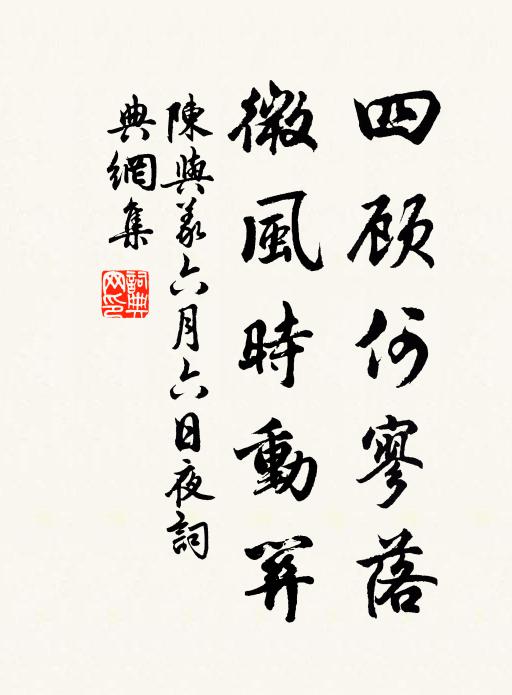 四顾何寥落
微風時動關
陳與義六月六日夜詞
典網集
詞典
网印